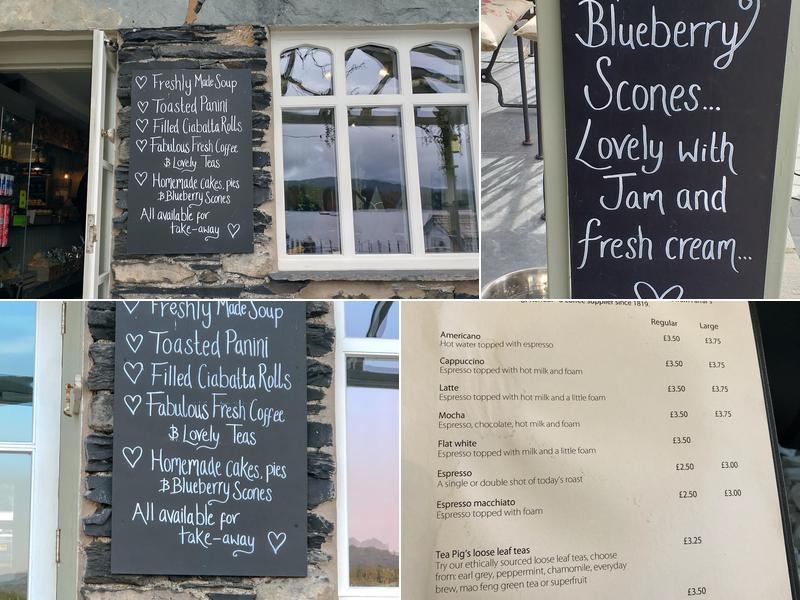 Freshly Made Soup
Toasted Panini
Filled Ciabatta Rolls
Fabulous Fresh Coffee
& Lovely Teas
Homemade cakes, pies
& Blueberry Scones
All available for
take-away
Blueberry
Scones...
Lovely with
Jam and
fresh cream...
Freshly Made Soup
Toasted Panini
Filled Ciabatta Rolls
Fabulous Fresh Coffee
& Lovely Teas
Homemade cakes, pies
& Blueberry Scones
All available for
take-away
coffee supplier since 1819.
Regular Large
Americano £3.50 £3.75
Hot water topped with espresso
Cappuccino £3.50 £3.75
Espresso topped with hot milk and foam
Latte £3.50 £3.75
Espresso topped with hot milk and a little foam
Mocha £3.50 £3.75
Espresso, chocolate, hot milk and foam
Flat white £3.50
Espresso topped with milk and a little foam
Espresso £2.50 £3.00
A single or double shot of today's roast
Espresso macchiato £2.50 £3.00
Espresso topped with foam
Tea Pig's loose leaf teas £3.25
Try our ethically sourced loose leaf teas, choose
from: earl grey, peppermint, chamomile, everyday
brew, mao feng green tea or superfruit
£3.50